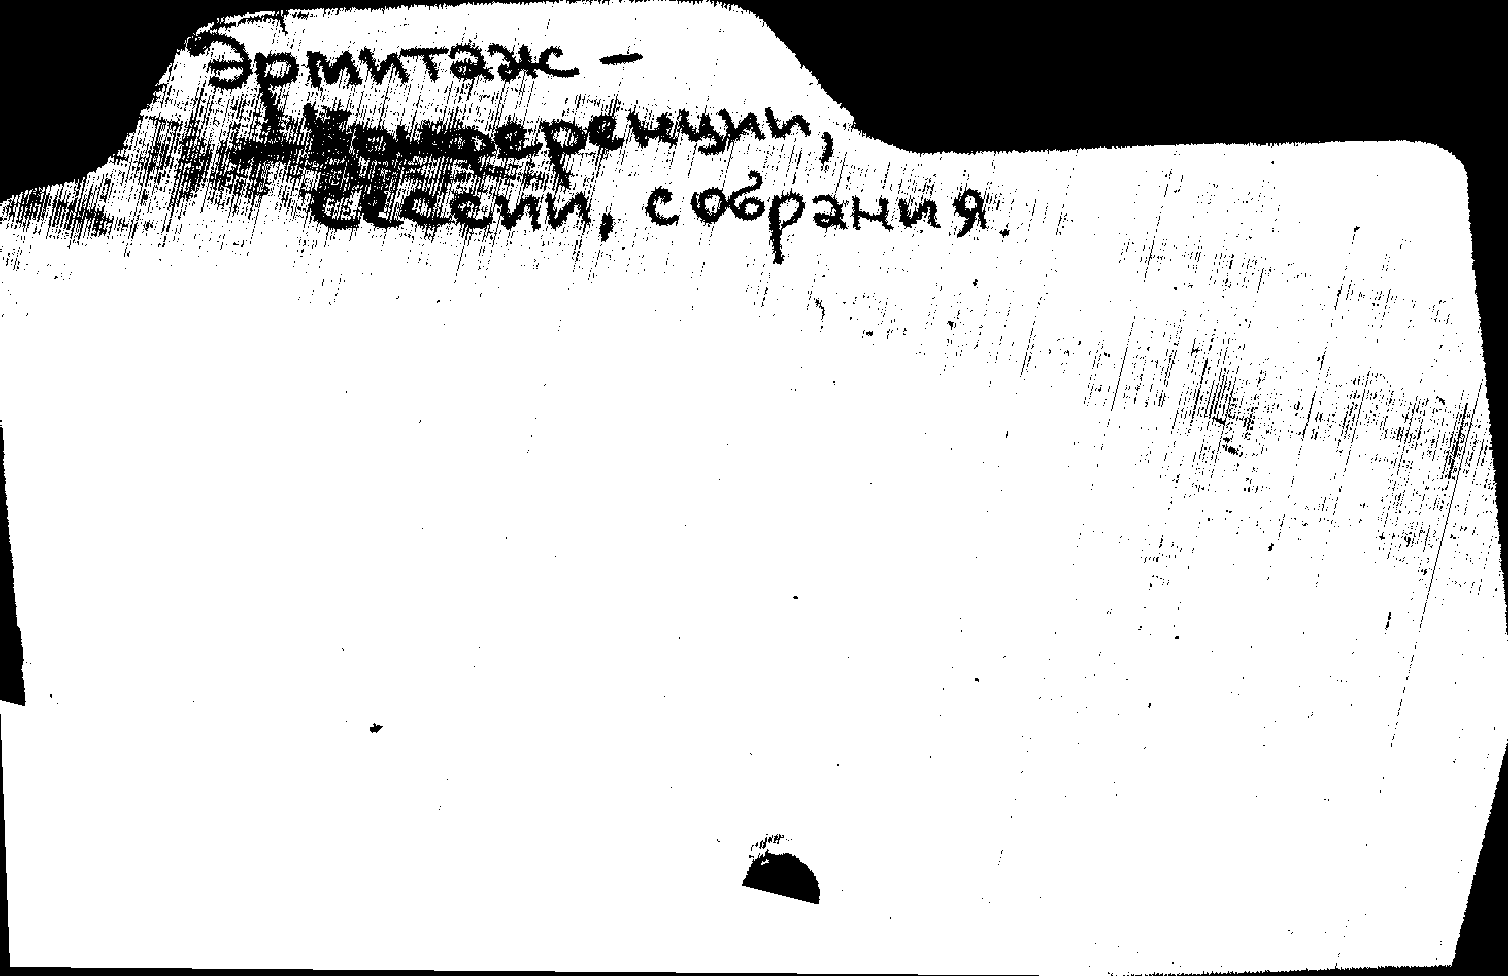 Эрмитаж -
- Конференции,
сессии, собрания.